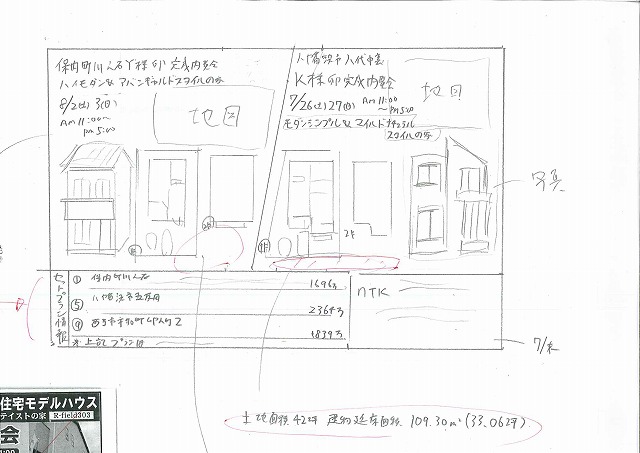 保内町川之石Y様邸完成内覧会
ハイモダン&アバンギャルドスタイルの家
8/2(土)3(日)
AM11:00
~PM5:00
地図
八幡浜市八代
K様邸完成内覧会
7/26(土)27(日) AM11:00
~PM5:00
モダンシンプル&マイルドナチュラル
スタイルの家
地図
写真
1F
2F
1F
2F
セットプラン情報
① 保内町川之石
1696万
⑤ 八幡浜市五反田
2364万
⑨ 西予市宇和町
1839万
※上記プランは
NTK
7/末
土地面積 42坪 建物延床面積 109.30㎡(33.06坪)
住宅モデルハウス
テイストの家 R-field303
会